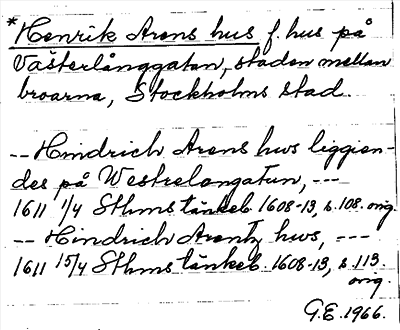 *Henrik Arens hus f. hus på
Västerlånggatan, staden mellan
broarna, Stockholms stad.
-- Hindrich Arens hws liggien-
des på Westrelangatun, ---
1611 1/4 Sthms tänkeb. 1608-13, s. 108. orig.
-- Hindrich Arentz hws, ---
1611 15/4 Sthms tänkeb. 1608-13, s. 113.
orig.
G.E. 1966.